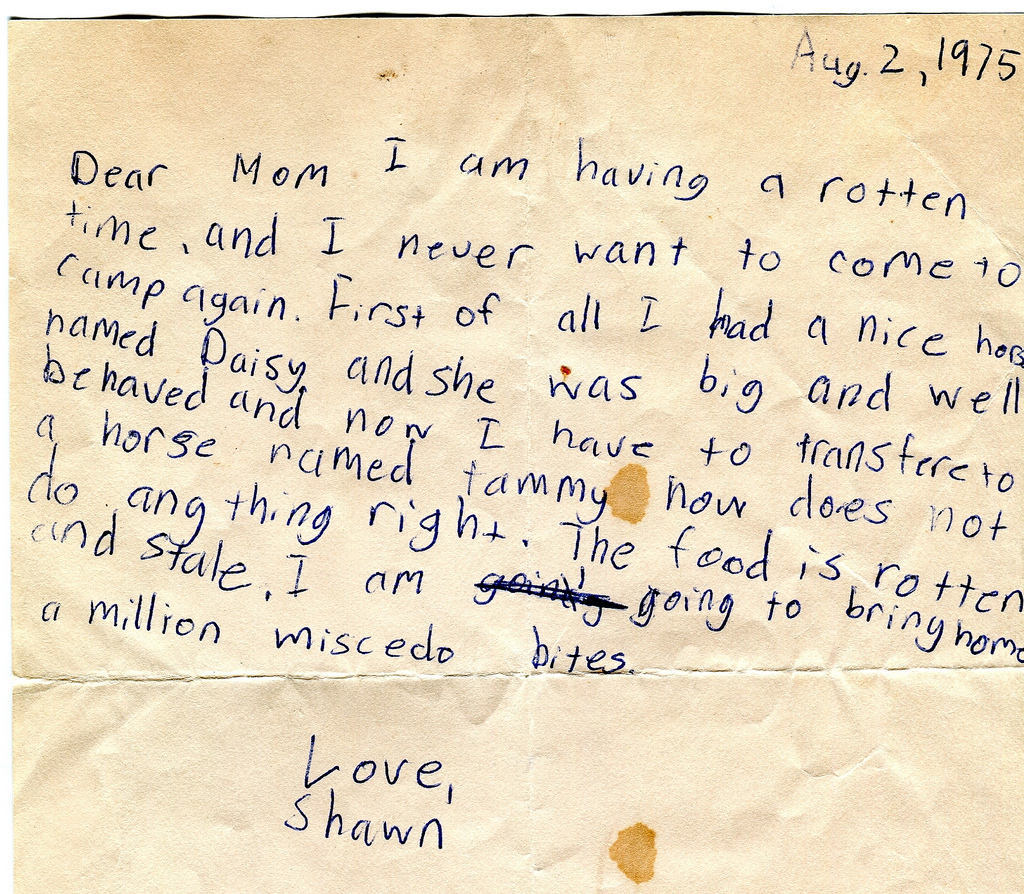 Aug. 2, 1975
Dear Mom I am having a rotten
time, and I never want to come to
camp again. First of all I had a nice horse
named Daisy and she was big and well
behaved and now I have to transfere to
a horse named tammy now does not
do any thing right. The food is rotten
and stale. I am going going to bring home
a million miscedo bites.
Love,
Shawn